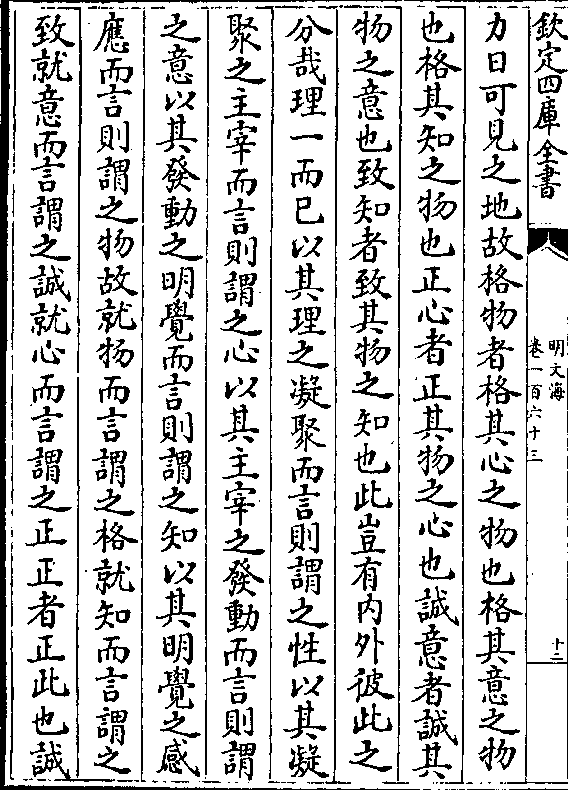 欽定四庫全書
明文海
卷一百六十三
十二
力日可見之地故格物者格其心之物也格其意之物
也格其知之物也正心者正其物之心也誠意者誠其
物之意也致知者致其物之知也此豈有内外彼此之
分哉理一而已以其理之凝聚而言則謂之性以其凝
聚之主宰而言則謂之心以其主宰之發動而言則謂
之意以其發動之明覺而言則謂之知以其明覺之感
應而言則謂之物故就物而言謂之格就知而言謂之
致就意而言謂之誠就心而言謂之正正者正此也誠